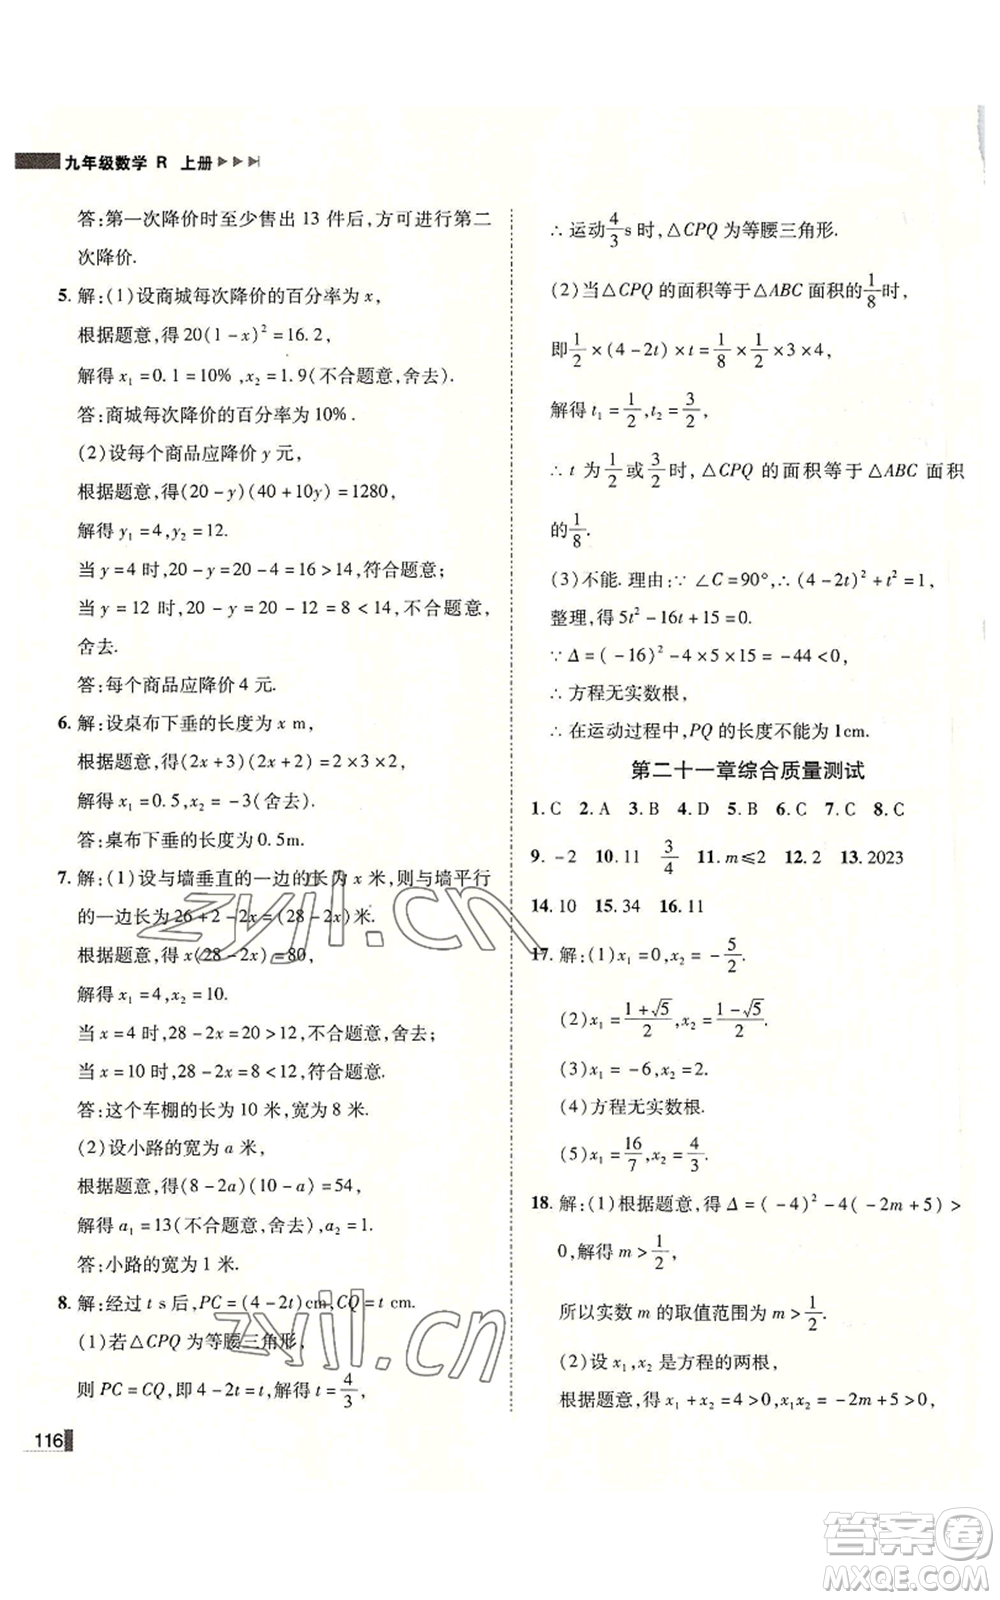 九年级数学 R 上册
答:第一次降价时至少售出 13 件后,方可进行第二
次降价.
5. 解:(1)设商城每次降价的百分率为 x,
根据题意,得 20(1-x)²=16.2,
解得 x₁=0.1=10%,x₂=1.9(不合题意,舍去).
答:商城每次降价的百分率为 10%.
(2)设每个商品应降价 y 元,
根据题意,得(20-y)(40+10y)=1280,
解得 y₁=4,y₂=12.
当 y=4 时,20-y=20-4=16>14,符合题意;
当 y=12 时,20-y=20-12=8<14,不合题意,
舍去.
答:每个商品应降价 4 元.
6. 解:设桌布下垂的长度为 x m,
根据题意,得(2x+3)(2x+2)=4×3×2,
解得 x₁=0.5,x₂=-3(舍去).
答:桌布下垂的长度为 0.5m.
7. 解:(1)设与墙垂直的一边的长为 x 米,则与墙平行
的一边长为 26+2-2x=(28-2x)米.
根据题意,得 x(28-2x)=80,
解得 x₁=4,x₂=10.
当 x=4 时,28-2x=20>12,不合题意,舍去;
当 x=10 时,28-2x=8<12,符合题意.
答:这个车棚的长为 10 米,宽为 8 米.
(2)设小路的宽为 a 米,
根据题意,得(8-2a)(10-a)=54,
解得 a₁=13(不合题意,舍去),a₂=1.
答:小路的宽为 1 米.
8. 解:经过 t s 后,PC=(4-2t)cm,CQ=t cm.
(1)若△CPQ 为等腰三角形,
则 PC=CQ,即 4-2t=t,解得 t=4/3,
116
∴ 运动 4/3 s 时,△CPQ 为等腰三角形.
(2)当△CPQ 的面积等于△ABC 面积的 1/8 时,
即 1/2×(4-2t)×t=1/8×1/2×3×4,
解得 t₁=1/2,t₂=3/2,
∴ t 为 1/2 或 3/2 时,△CPQ 的面积等于△ABC 面积
的 1/8.
(3)不能. 理由:∵ ∠C=90°,∴(4-2t)²+t²=1,
整理,得 5t²-16t+15=0.
∵ Δ=(-16)²-4×5×15=-44<0,
∴ 方程无实数根,
∴ 在运动过程中,PQ 的长度不能为 1cm.
第二十一章综合质量测试
1. C 2. A 3. B 4. D 5. B 6. C 7. C 8. C
9. -2 10. 11 3/4 11. m≤2 12. 2 13. 2023
14. 10 15. 34 16. 11
17. 解:(1)x₁=0,x₂=-5/2.
(2)x₁=(1+√5)/2,x₂=(1-√5)/2.
(3)x₁=-6,x₂=2.
(4)方程无实数根.
(5)x₁=16/7,x₂=4/3.
18. 解:(1)根据题意,得 Δ=(-4)²-4(-2m+5)>
0,解得 m>1/2,
所以实数 m 的取值范围为 m>1/2.
(2)设 x₁,x₂ 是方程的两根,
根据题意,得 x₁+x₂=4>0,x₁x₂=-2m+5>0,
zyjl.cn
zyjl.cn
答案圈
MXQE.COM